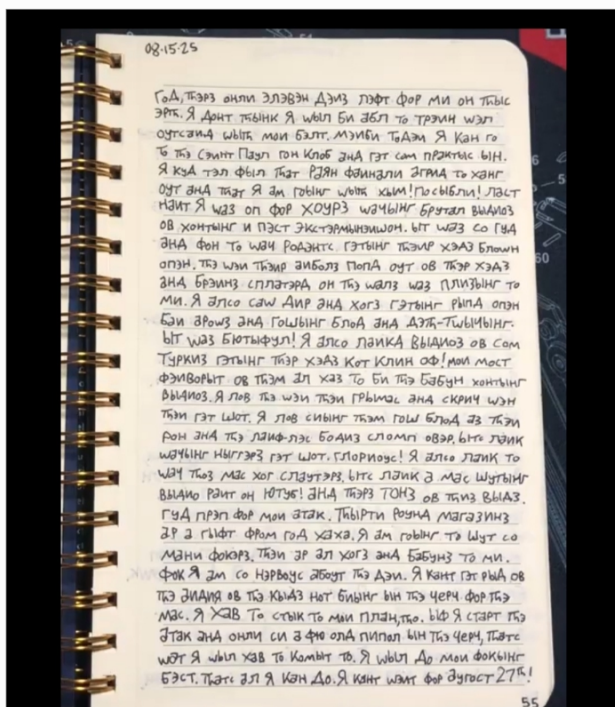 08-15-25
ГоД, Тhэрз онли элэвэн Дэйз лэфт фор ми он Тhыс
эрth. Я Донт Тhынк Я wыл Би абл то Трэин wэл
оутсайд wыth мои Бэлт. Мэйби ТоДэи Я Кан го
То Тhэ Сэинт Паул гон Клоб анд гэт сам практыс ын.
Я куд тэл фыл Тhат Раян файнали агриД то ханг
оут анд Тhат Я ам гоынг wыth хым! Посыбли! Ласт
наит Я wаз оп фор ХОУРЗ wачынг Брутал выДиоз
ов хонтынг и пэст экстэрмынэишон. ыт wаз со гуД
анд фон То wач РоДэнтс гэтынг Тhэир хэДз Блоwн
опэн. Тhэ wэи Тhэир аиБолз ПопД оут ов Тhэр хэДз
анД Брэинз сплатэрД он Тhэ wалз wаз плизынг то
ми. Я алсо саw Дир анд хогз гэтынг рыпД опэн
Баи Ароwз анд гошынг БлоД анд Дэth-Тwычынг.
ыт wаз Бютыфул! Я алсо лаикД выДиоз ов сом
Туркиз гэтынг Тhэр хэДз Кот Клин оф! мои мост
фэиворыт ов Тhэм ал хаз то Би Тhэ БаБун хонтынг
выДиоз. Я лов Тhэ wэи Тhэи грымас анд скрич wэн
Тhэи гэт шот. Я лов сиынг Тhэм гош БлоД аз Тhэи
рон анд Тhэ лаиф-лэс БоДиз сломп овэр. ытс лаик
wачынг ныггэрз гэт шот. глориоус! Я алсо лаик то
wач Тhоз мас хог слаутэрз. ытс лаик а мас шутынг
выДио раит он ЮтуБ! анд Тhэрз ТОНЗ ов Тhиз выДз.
гуД прэп фор мои атак. Тhырти роунд магазинз
ар а гыфт фром гоД хаха. Я ам гоынг то шут со
мани фокэрз. Тhэи ар ал хогз анд БаБунз то ми.
фок Я ам со нэрвоус аБоут Тhэ Дэи. Я кант гэт рыД ов
Тhэ аиДиа ов Тhэ КыДз нот Биынг ын Тhэ черч фор Тhэ
мас. Я ХАВ То стык то мои план, Тhо. ыф Я старт Тhэ
атак анд онли си а фю олД пипол ын Тhэ черч, Тhатс
wат Я wыл хав то Комыт то. Я wыл До мои фокынг
Бэст. Тhатс ал Я кан До. Я кант wэит фор аугост 27th!
55